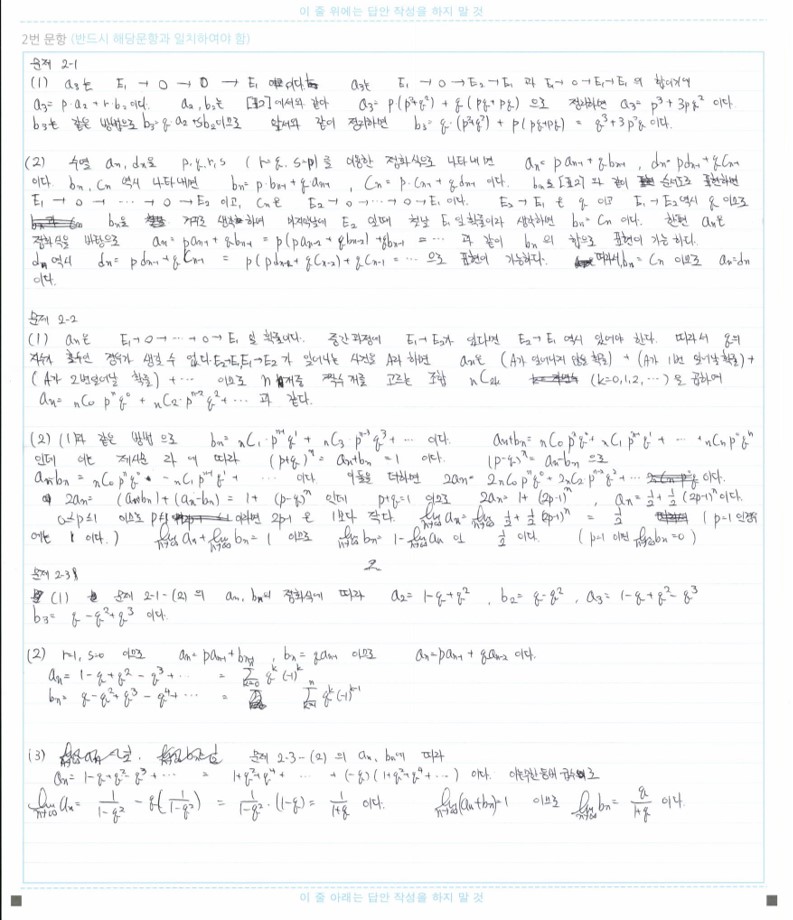 이 줄 위에는 답안 작성을 하지 말 것
2번 문항 (반드시 해당문항과 일치하여야 함)
문제 2-1
(1) a₃는 E₁ → O → O → E₁ 이다. a₃는 E₁ → O → E₂ → E₁ 과 E₁ → O → E₁ → E₁ 의 합이기에
a₃ = p·a₂ + r·b₂ 이다. a₂, b₂는 [표2]에서와 같다 a₃ = p(p²+q²) + q(pq+pq) 으로 정리하면 a₃ = p³ + 3pq² 이다
b₃는 같은 방법으로 b₃ = q·a₂ + sb₂ 이므로 앞서와 같이 정리하면 b₃ = q·(p²+q²) + p(pq+pq) = q³ + 3p²q 이다.
(2) 수열 aₙ, dₙ로 p, q, r, s (r=q, s=p)를 이용한 점화식으로 나타내면 aₙ = paₙ₋₁ + qbₙ₋₁, dₙ = pdₙ₋₁ + qcₙ₋₁
이다. bₙ, cₙ 역시 나타내면 bₙ = p·bₙ₋₁ + qaₙ₋₁, cₙ = p·cₙ₋₁ + qdₙ₋₁ 이다. bₙ도 [표2]와 같이 순서도로 표현하면
E₁ → O → ⋯ → O → E₂ 이고, cₙ은 E₂ → O → ⋯ → O → E₁ 이다. E₂ → E₁ 은 q 이고 E₁ → E₂ 역시 q 이므로
bₙ을 거꾸로 생각하여 마지막날에 E₂ 일때 첫날 E₁ 일 확률이라 생각하면 bₙ = cₙ 이다. 한편 aₙ은
점화식을 바탕으로 aₙ = paₙ₋₁ + qbₙ₋₁ = p(paₙ₋₂ + qbₙ₋₂) + qbₙ₋₁ = ⋯ 과 같이 bₙ 의 합으로 표현이 가능하다.
dₙ 역시 dₙ = pdₙ₋₁ + qcₙ₋₁ = p(pdₙ₋₂ + qcₙ₋₂) + qcₙ₋₁ = ⋯ 으로 표현이 가능하다. 따라서, bₙ = cₙ 이므로 aₙ = dₙ
이다.
문제 2-2
(1) aₙ은 E₁ → O → ⋯ → O → E₁ 일 확률이다. 중간과정에 E₁ → E₂가 있다면 E₂ → E₁ 역시 있어야 한다. 따라서 q의
지수가 홀수인 경우가 생길 수 없다 E₁→E₂, E₂→E₁ 가 일어나는 사건을 A라 하면 aₙ은 (A가 일어나지 않을 확률) + (A가 1번 일어날 확률) +
(A가 2번일어날 확률) + ⋯ 이므로 n개를 짝수개를 고르는 조합 ₙC₂ₖ (k=0,1,2,⋯) 을 곱하여
aₙ = ₙC₀ pⁿq⁰ + ₙC₂·pⁿ⁻²q² + ⋯ 과 같다.
(2) (1)과 같은 방법으로 bₙ = ₙC₁·pⁿ⁻¹q¹ + ₙC₃ pⁿ⁻³q³ + ⋯ 이다. aₙ+bₙ = ₙC₀ pⁿq⁰ + ₙC₁pⁿ⁻¹q¹ + ⋯ + ₙCₙp⁰qⁿ
인데 이는 제시문 라에 따라 (p+q)ⁿ = aₙ+bₙ = 1 이다. (p-q)ⁿ = aₙ-bₙ 으로
aₙ-bₙ = ₙC₀pⁿq⁰ - ₙC₁pⁿ⁻¹q¹ + ⋯ 이다 이들을 더하면 2aₙ = 2ₙC₀pⁿq⁰ + 2ₙC₂pⁿ⁻²q² + ⋯ 이다.
2aₙ = (aₙ+bₙ) + (aₙ-bₙ) = 1 + (p-q)ⁿ 인데 p+q=1 이므로 2aₙ = 1 + (2p-1)ⁿ, aₙ = ½ + ½(2p-1)ⁿ 이다.
0≤p≤1 이므로 p≠1 이라면 2p-1 은 1보다 작다. lim(n→∞) aₙ = lim(n→∞) ½ + ½(2p-1)ⁿ = ½ (p=1 인경우
에는 1 이다.) lim(n→∞) aₙ + lim(n→∞) bₙ = 1 이므로 lim(n→∞) bₙ = 1 - lim(n→∞) aₙ 인 ½ 이다. (p=1 이면 lim(n→∞) bₙ = 0)
문제 2-3
(1) 문제 2-1-(2) 의 aₙ, bₙ의 점화식에 따라 a₂ = 1-q+q², b₂ = q-q², a₃ = 1-q+q²-q³
b₃ = q-q²+q³ 이다.
(2) r=1, s=0 이므로 aₙ = paₙ₋₁ + bₙ₋₁, bₙ = qaₙ₋₁ 이므로 aₙ = paₙ₋₁ + qaₙ₋₂ 이다.
aₙ = 1-q+q²-q³+⋯ = Σ(k=0, n) qᵏ(-1)ᵏ
bₙ = q-q²+q³-q⁴+⋯ = Σ(k=1, n) qᵏ(-1)ᵏ⁻¹
(3) 문제 2-3-(2) 의 aₙ, bₙ에 따라
aₙ = 1-q+q²-q³+⋯ = 1+q²+q⁴+⋯ + (-q)(1+q²+q⁴+⋯) 이다. 이는무한등비 급수로
lim(n→∞) aₙ = 1/(1-q²) - q(1/(1-q²)) = 1/(1-q²)·(1-q) = 1/(1+q) 이다. lim(n→∞)(aₙ+bₙ)=1 이므로 lim(n→∞) bₙ = q/(1+q) 이다.
2
이 줄 아래는 답안 작성을 하지 말 것